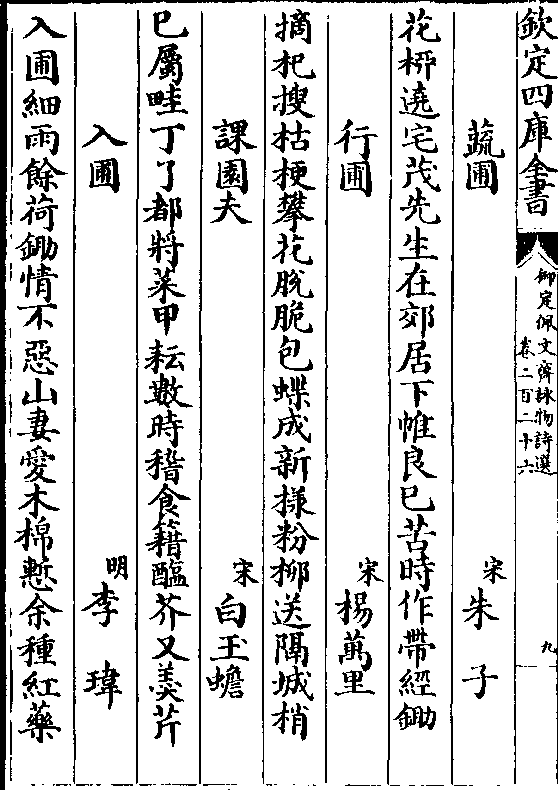 欽定四庫全書
御定佩文齋詠物詩選
卷二百二十六
九
蔬圃
宋
朱子
花枿遶宅茂先生在郊居下帷良已苦時作帶經鋤
行圃
宋
楊萬里
摘杞搜枯梗攀花脫脆包蝶成新様粉柳送隔城梢
課園夫
宋
白玉蟾
已屬畦丁了都將菜甲耘數時稽食籍醢芥又羮芹
入圃
明
李瑋
入圃細雨餘荷鋤情不惡山妻愛木棉慙余種紅藥